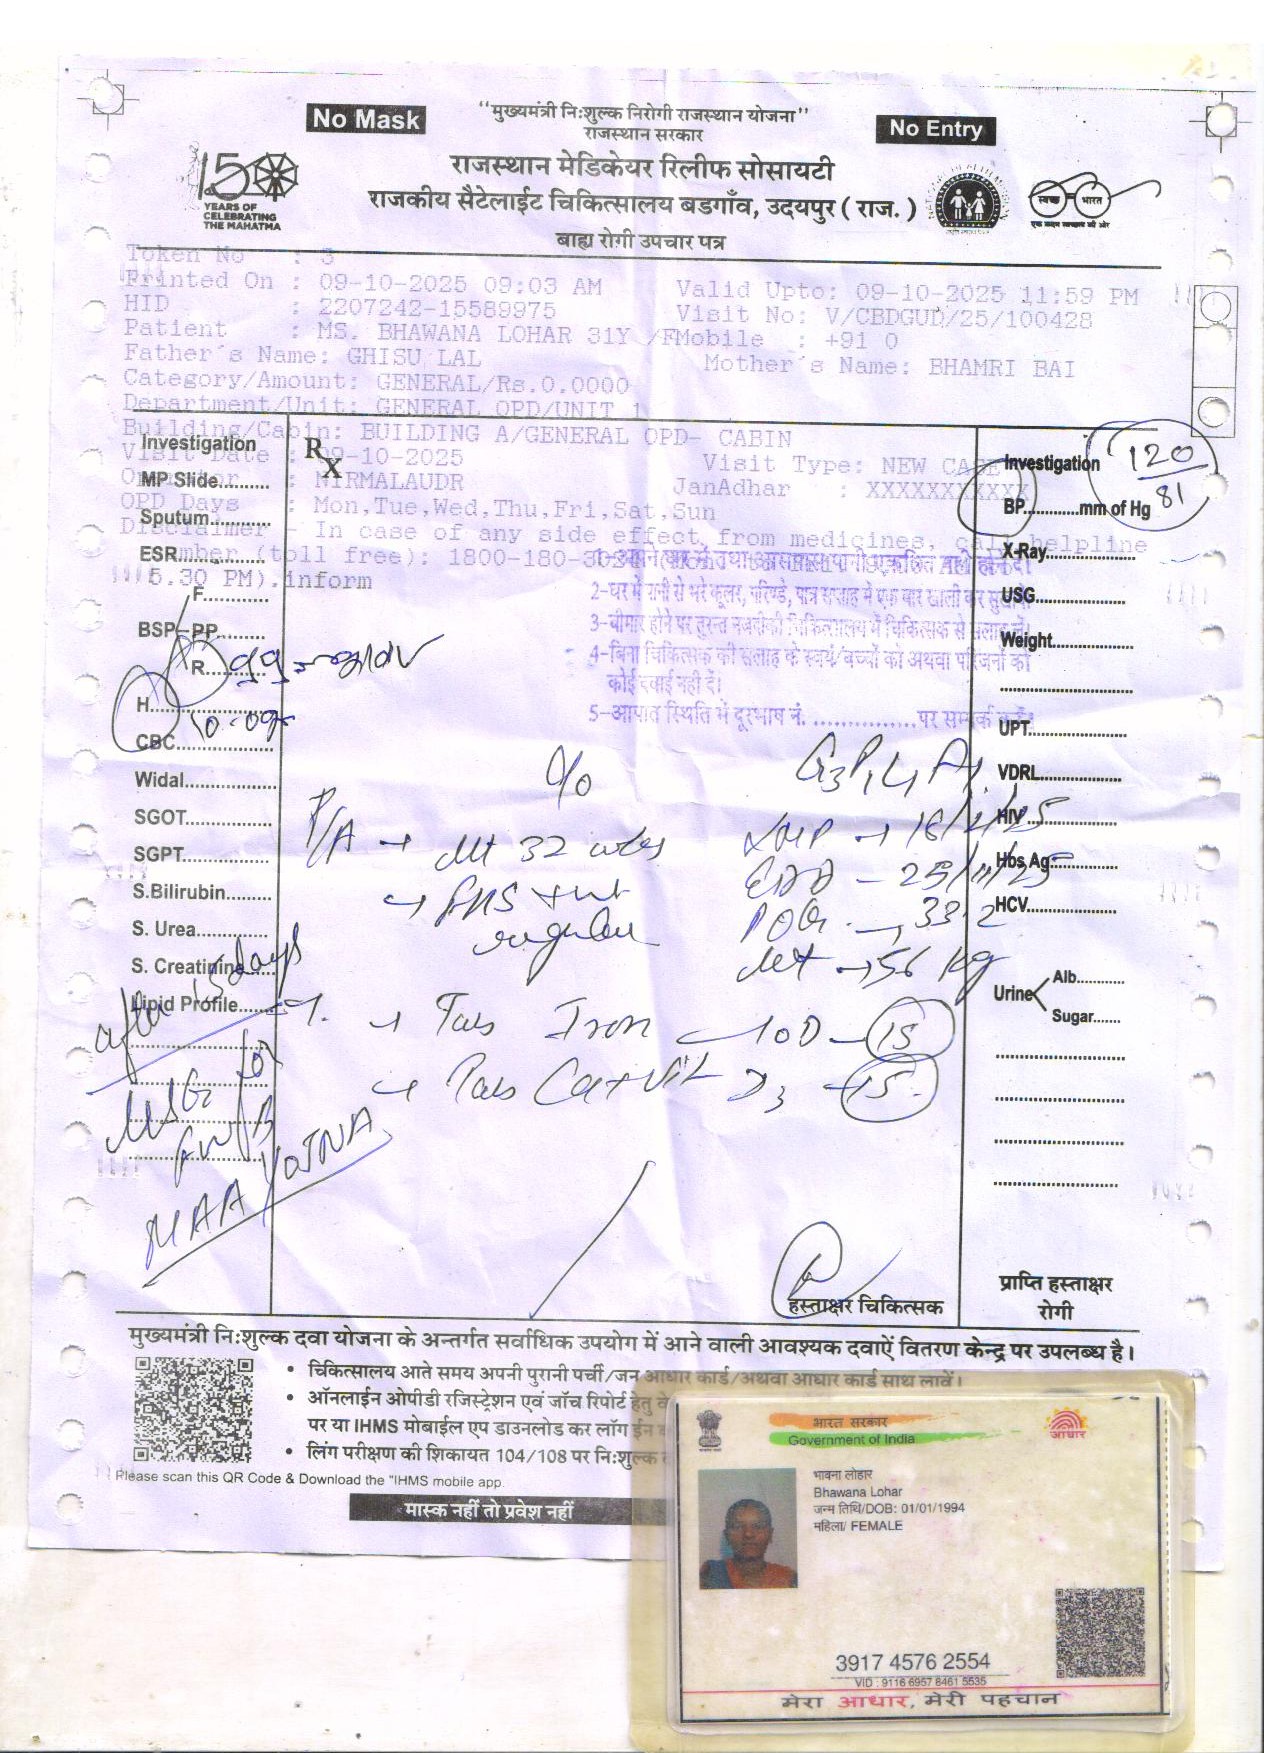 No Mask
"मुख्यमंत्री निःशुल्क निरोगी राजस्थान योजना"
राजस्थान सरकार
No Entry
राजस्थान मेडिकेयर रिलीफ सोसायटी
राजकीय सैटेलाईट चिकित्सालय बडगाँव, उदयपुर ( राज. )
150
YEARS OF
CELEBRATING
THE MAHATMA
स्वच्छ भारत
एक कदम स्वच्छता की ओर
बाह्य रोगी उपचार पत्र
Token No : 3
Printed On : 09-10-2025 09:03 AM Valid Upto: 09-10-2025 11:59 PM
HID : 2207242-15589975 Visit No: V/CBDGUD/25/100428
Patient : MS. BHAWANA LOHAR 31Y /F Mobile : +91 0
Father's Name: GHISU LAL Mother's Name: BHAMRI BAI
Category/Amount: GENERAL/Rs.0.0000
Department/Unit: GENERAL OPD/UNIT 1
Building/Cabin: BUILDING A/GENERAL OPD- CABIN
Visit Date : 09-10-2025 Visit Type: NEW CASE
: NIRMALAUDR JanAdhar : XXXXXXXXXXX
OPD Days : Mon,Tue,Wed,Thu,Fri,Sat,Sun
Disclaimer - In case of any side effect from medicines, call helpline
(toll free): 1800-180-
5.30 PM).inform
2-घर में पानी से भरे कूलर, परिण्डे, पात्र सप्ताह में एक बार खाली कर
3-बीमार होने पर तुरन्त नजदीकी चिकित्सालय में चिकित्सक से सलाह लें।
4-बिना चिकित्सक की सलाह के स्वयं/बच्चों को अथवा परिजनों को
कोई दवाई नहीं दें।
5-आपात स्थिति में दूरभाष नं. ...............पर सम्पर्क करें।
Investigation
MP Slide.........
Sputum............
ESR
F............
BSP PP.........
R.........
H.........
CBC...................
Widal..................
SGOT.................
SGPT.................
S.Bilirubin.........
S. Urea..............
S. Creatinine
Lipid Profile.......
Rx
c/o
P/A → 32
→ FHS
regular
LMP → 18/2/25
EDD - 25/11/25
POG → 33.2
wt → 56 kg
→ Tab Iron OD - 15
→ Tab Ca+Vit D3 - 15
after 15 days
USG for
FWB
MAA YOJNA
Investigation
120/81
BP............mm of Hg
X-Ray...................
USG.....................
Weight.................
UPT......................
VDRL...................
HIV
Hbs Ag
HCV.....................
Urine
Alb............
Sugar.......
हस्ताक्षर चिकित्सक
प्राप्ति हस्ताक्षर
रोगी
मुख्यमंत्री निःशुल्क दवा योजना के अन्तर्गत सर्वाधिक उपयोग में आने वाली आवश्यक दवाऐं वितरण केन्द्र पर उपलब्ध है।
• चिकित्सालय आते समय अपनी पुरानी पर्ची/जन आधार कार्ड/अथवा आधार कार्ड साथ लावें।
• ऑनलाईन ओपीडी रजिस्ट्रेशन एवं जाँच रिपोर्ट हेतु
पर या IHMS मोबाईल एप डाउनलोड कर लॉग ईन
• लिंग परीक्षण की शिकायत 104/108 पर निःशुल्क
Please scan this QR Code & Download the "IHMS mobile app.
मास्क नहीं तो प्रवेश नहीं
भारत सरकार
Government of India
आधार
भावना लोहार
Bhawana Lohar
जन्म तिथि/DOB: 01/01/1994
महिला/ FEMALE
3917 4576 2554
VID : 9116 6957 8461 5535
मेरा आधार, मेरी पहचान